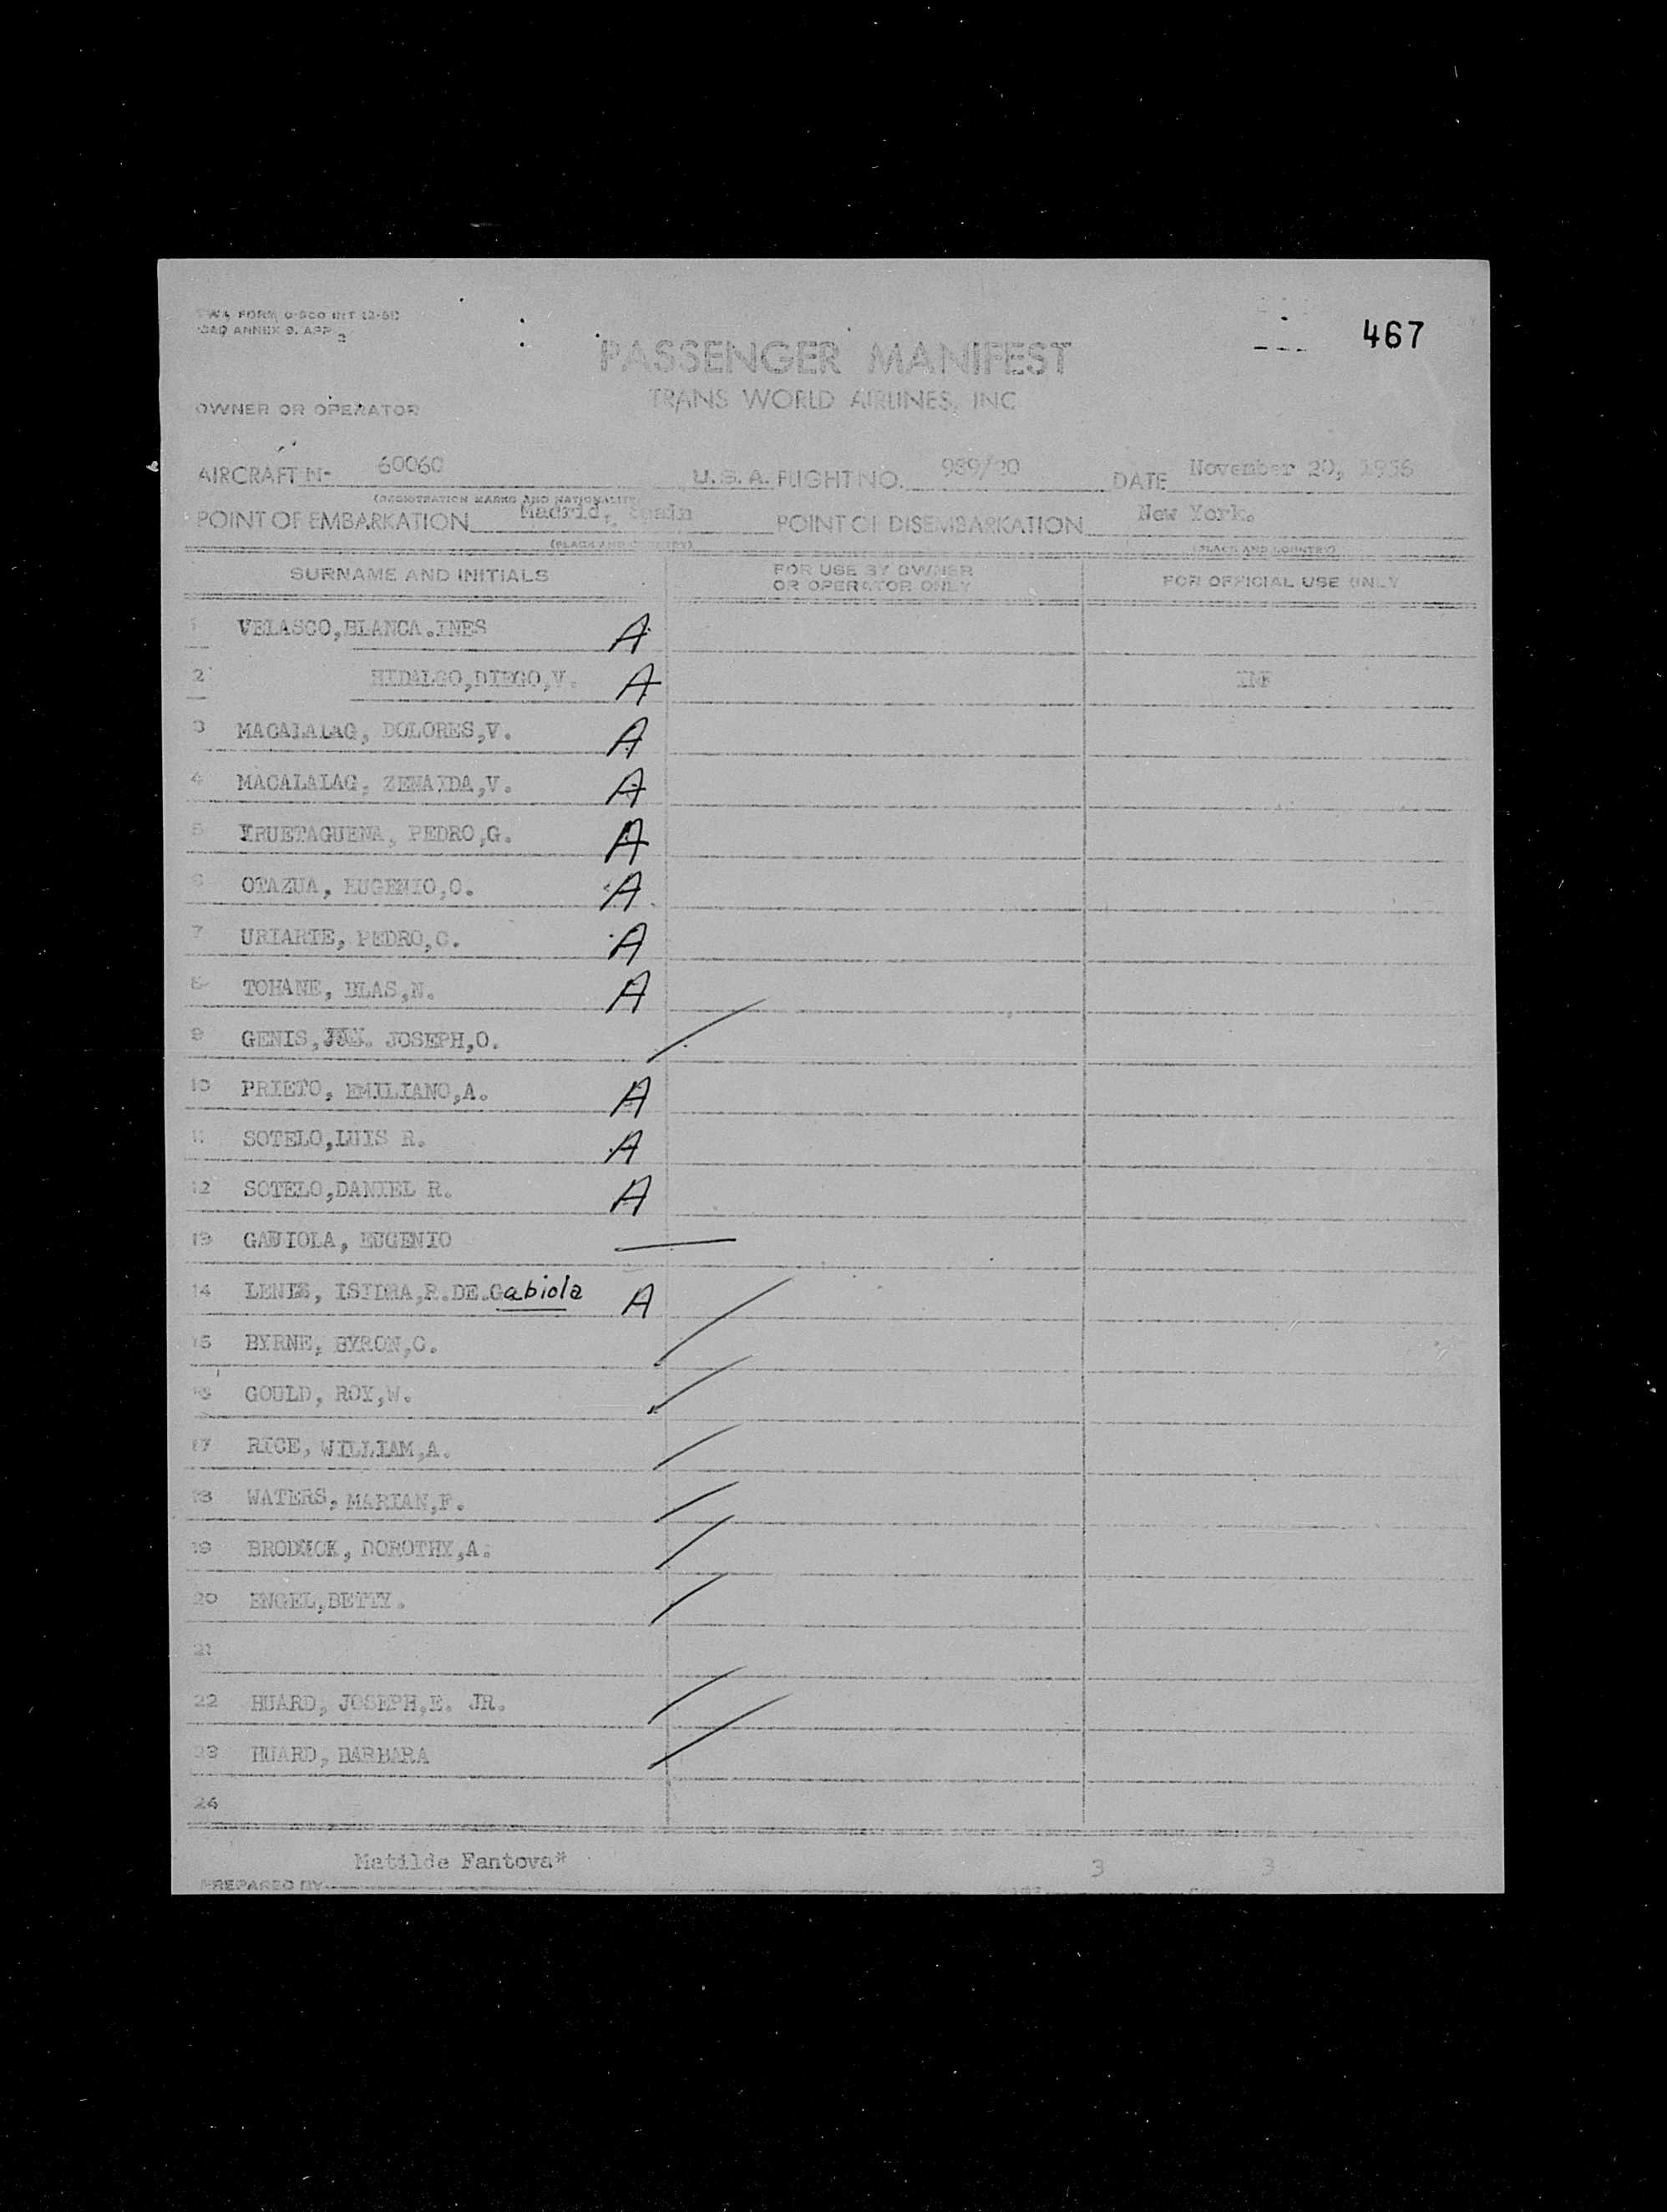 TWA FORM O-500 INT (3-51)
ICAO ANNEX 9. APP. 3
467
PASSENGER MANIFEST
TRANS WORLD AIRLINES, INC
OWNER OR OPERATOR
AIRCRAFT Nº 60060 U.S.A. FLIGHT NO. 989/20 DATE November 20, 1956
(REGISTRATION MARKS AND NATIONALITY)
POINT OF EMBARKATION Madrid, Spain POINT OF DISEMBARKATION New York.
(PLACE AND COUNTRY) (PLACE AND COUNTRY)
SURNAME AND INITIALS FOR USE BY OWNER OR OPERATOR ONLY FOR OFFICIAL USE ONLY
1 VELASCO,BLANCA.INES A
2 HIDALGO,DIEGO,V. A INF
3 MACALALAG, DOLORES,V. A
4 MACALALAG, ZENAIDA,V. A
5 YRUETAGUENA, PEDRO,G. A
6 OTAZUA, EUGENIO,O. A
7 URIARTE, PEDRO,C. A
8 TOHANE, BLAS,N. A
9 GENIS, JOSEPH,O.
10 PRIETO, EMILIANO,A. A
11 SOTELO,LUIS R. A
12 SOTELO,DANIEL R. A
13 GAUIOLA, EUGENIO
14 ISIDRA,R.DE.Gabiola A
15 BYRNE, BYRON,C.
16 GOULD, ROY,W.
17 RICE, WILLIAM,A.
18 WATERS, MARIAN,F.
19 DOROTHY,A.
20 ENGEL,BETTY.
21
22 HUARD, JOSEPH,E. JR.
23 HUARD, BARBARA
24
Matilde Fantova* 3 3
PREPARED BY